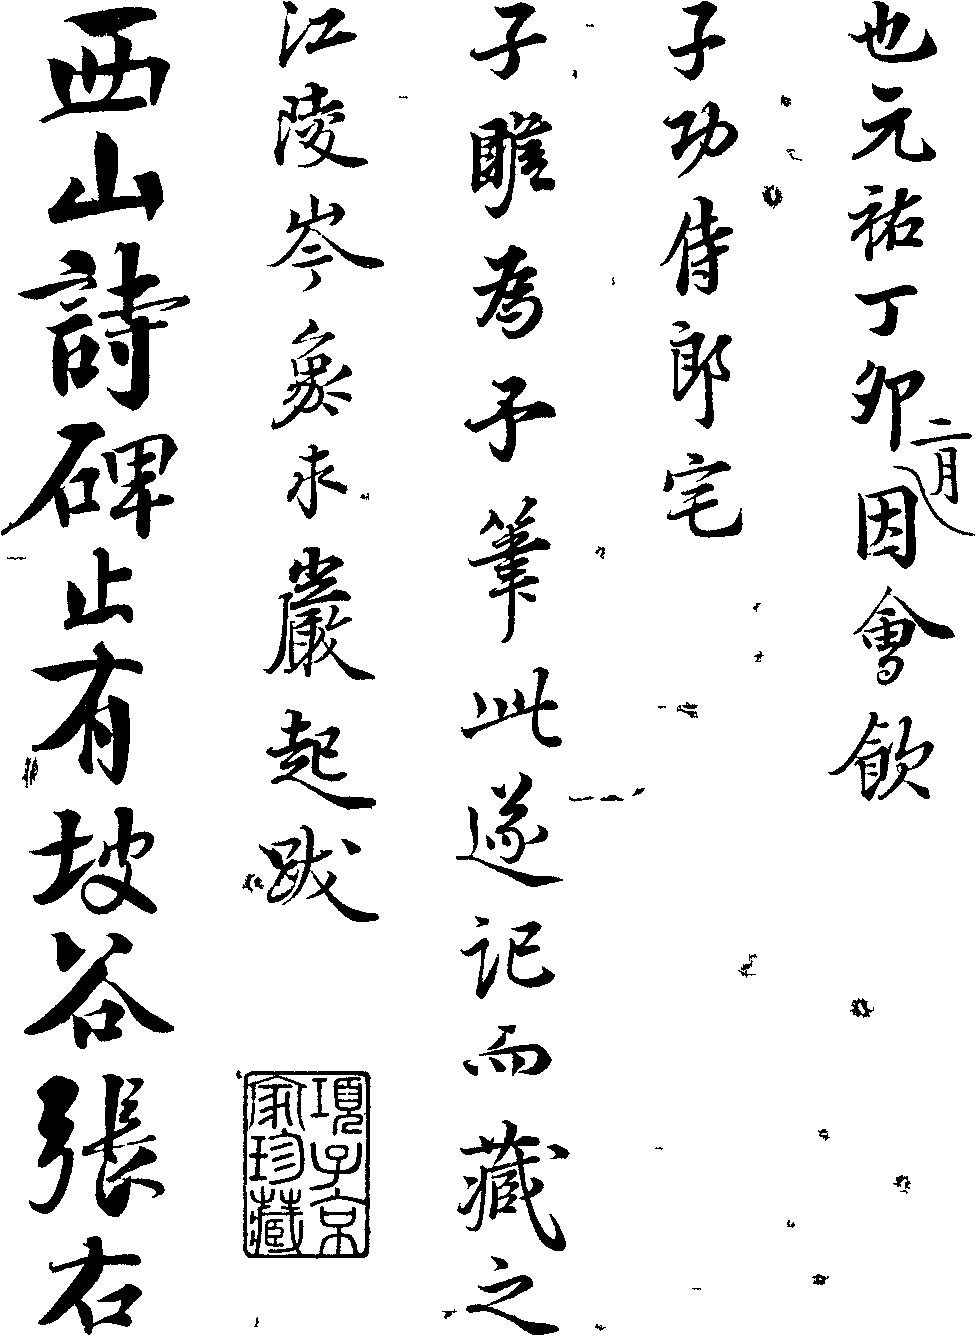 也元祐丁卯二月因會飲
子功侍郎宅
子雎為予筆此遂記而藏之
江陵岑象求巖起跋
項子京家珍藏
西山詩碑止有坡谷張右